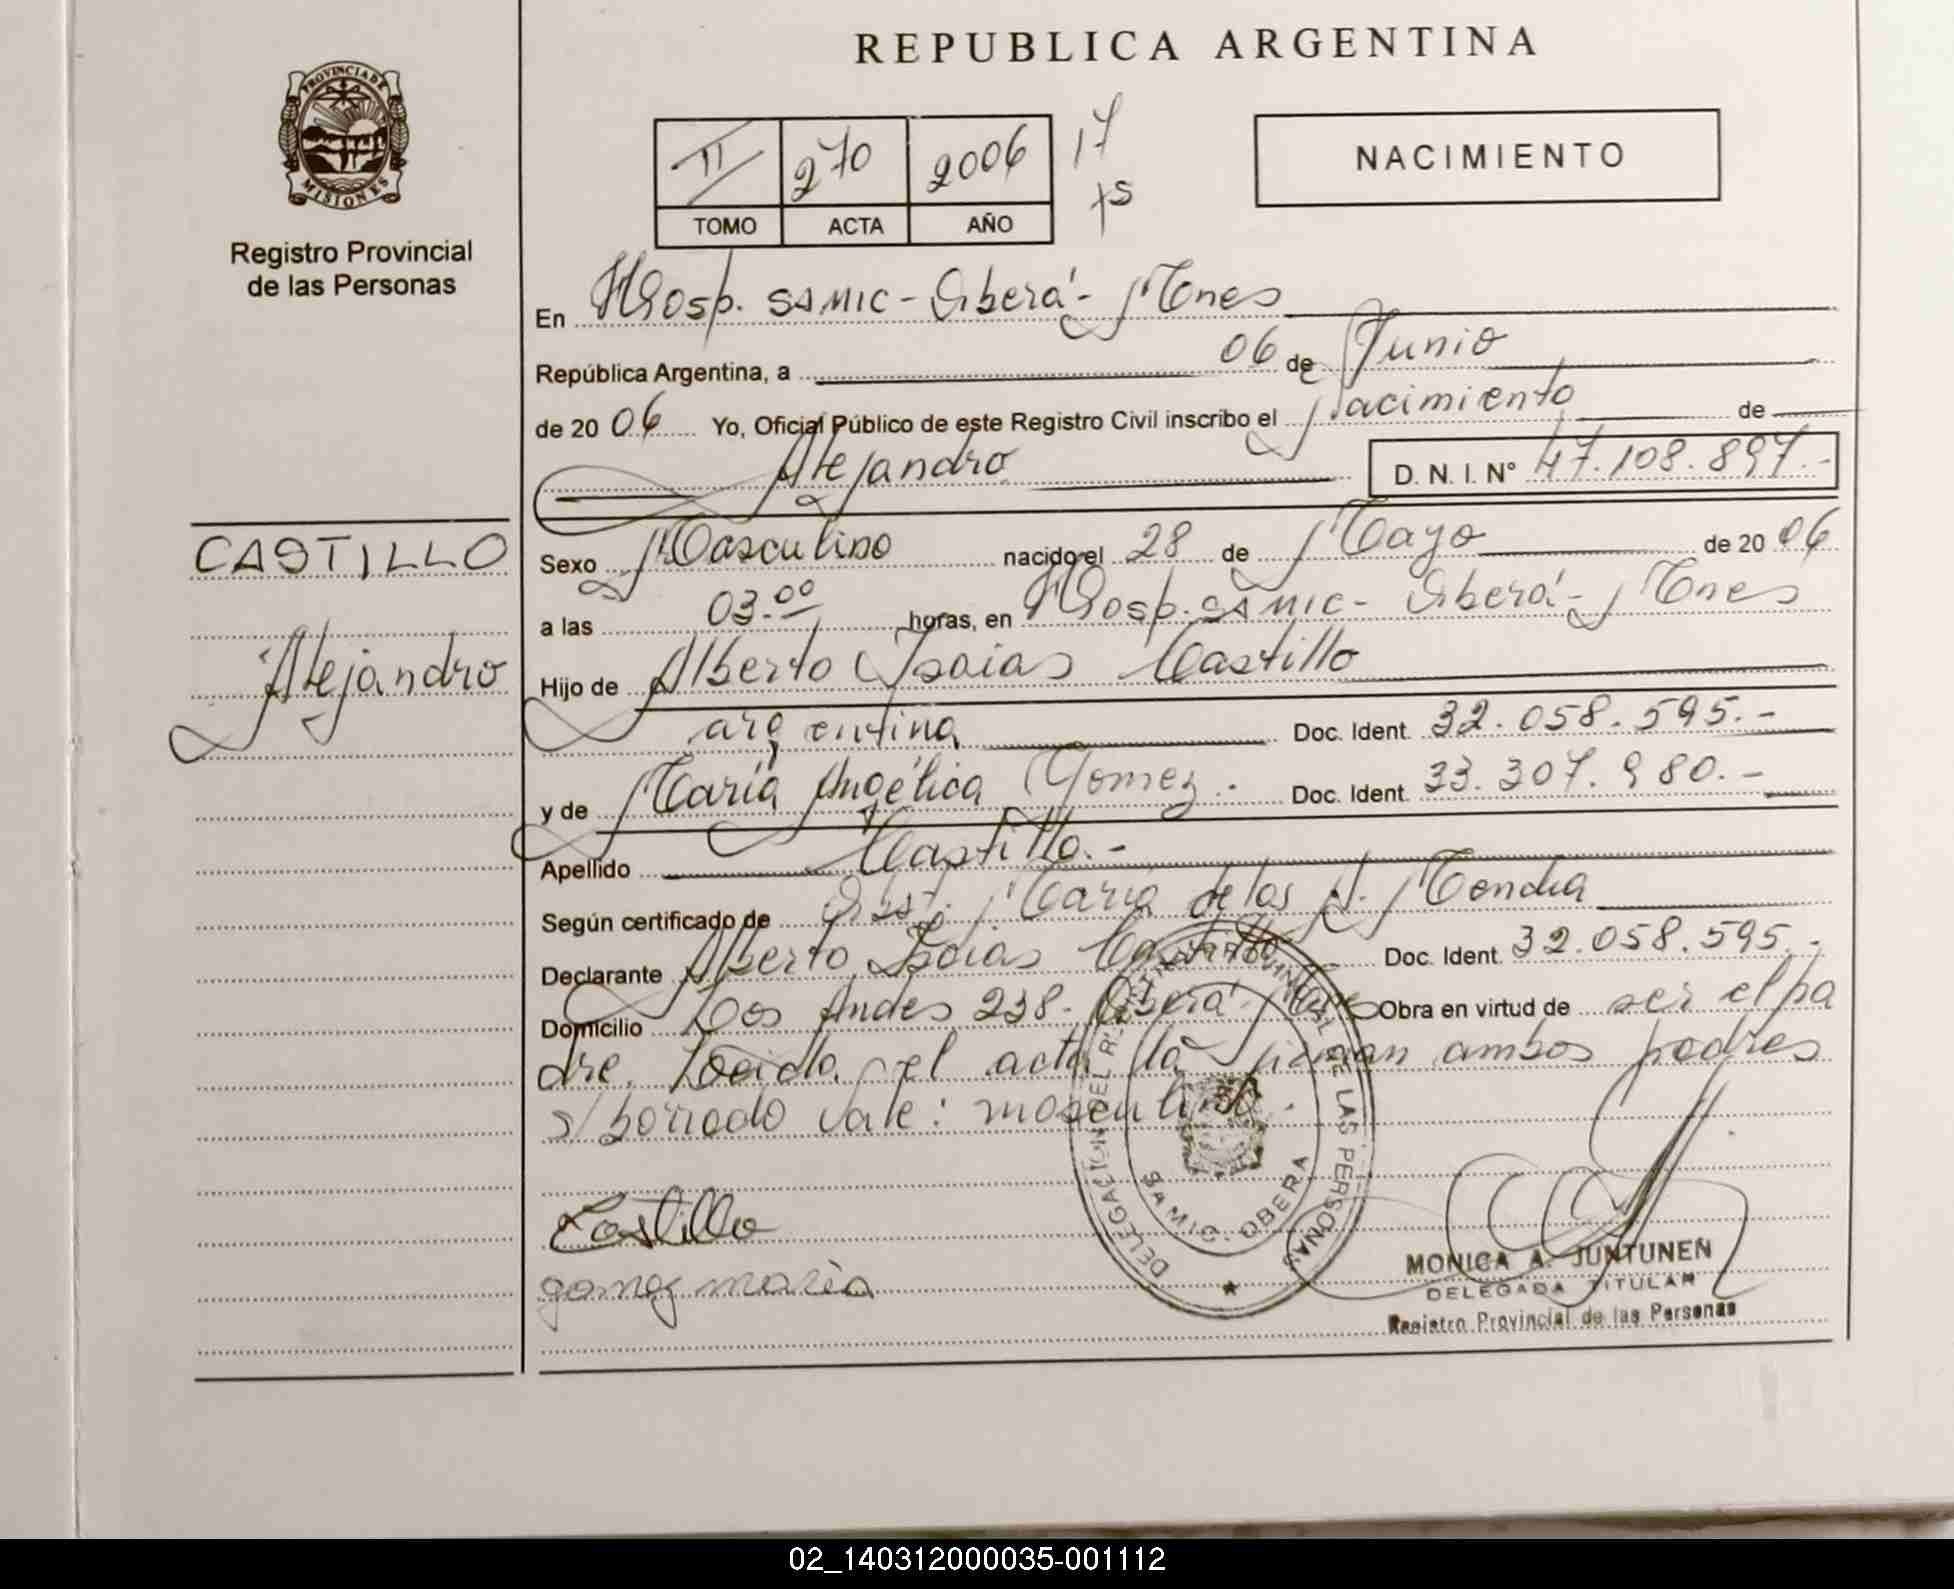 PROVINCIA DE
MISIONES
Registro Provincial
de las Personas
CASTILLO
Alejandro
REPUBLICA ARGENTINA
II 270 2006 17
TOMO ACTA AÑO
NACIMIENTO
En Hosp. SAMIC - Oberá - Mnes
República Argentina, a 06 de Junio
de 2006 Yo, Oficial Público de este Registro Civil inscribo el Nacimiento de
Alejandro D. N. I. Nº 47.108.897.-
Sexo Masculino nacido el 28 de Mayo de 2006
a las 03.00 horas, en Hosp. SAMIC - Oberá - Mnes
Hijo de Alberto Isaias Castillo
argentina Doc. Ident. 32.058.595.-
y de María Angélica Gomez.- Doc. Ident. 33.307.980.-
Apellido Castillo.-
Según certificado de Obst. María de los A.
Declarante Alberto Isaias Castillo Doc. Ident. 32.058.595.-
Domicilio Los Andes 238- Oberá- Mnes Obra en virtud de ser el pa
dre. Leida el acta la firman ambos padres
s/borrado vale: masculino.
Castillo
gomez maria
DELEGACIÓN DEL REGISTRO PROVINCIAL DE LAS PERSONAS
SAMIC OBERA
MONICA A. JUNTUNEN
DELEGADA TITULAR
Registro Provincial de las Personas
02_140312000035-001112